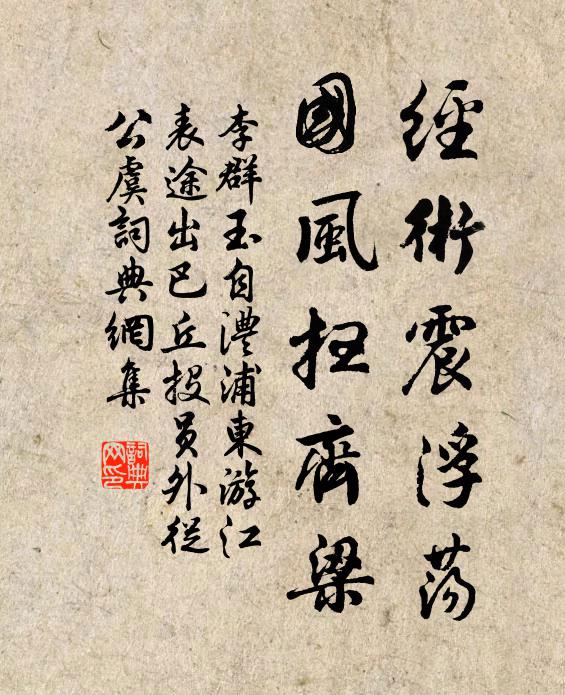 經術震浮蕩
國風扫齊梁
李群玉自澧浦東游江
表途出巴丘投员外從
公虞詞典網集
詞典
网印